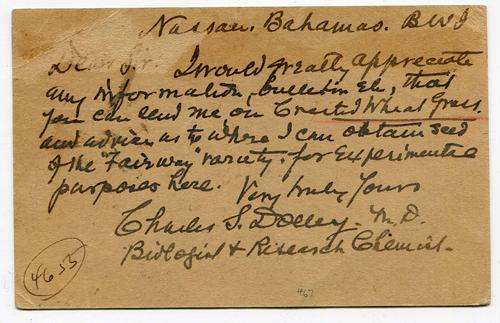 Nassau. Bahamas. B W I
Dear Sir. I would greatly appreciate
any information, bulletin etc, that
you can send me on Crested Wheat Grass.
and advice as to where I can obtain seed
of the "Fairway" variety. for experimental
purposes here.
Very truly Yours
Charles S. Dolley. M.D.
Biologist & Research Chemist.
4653
467